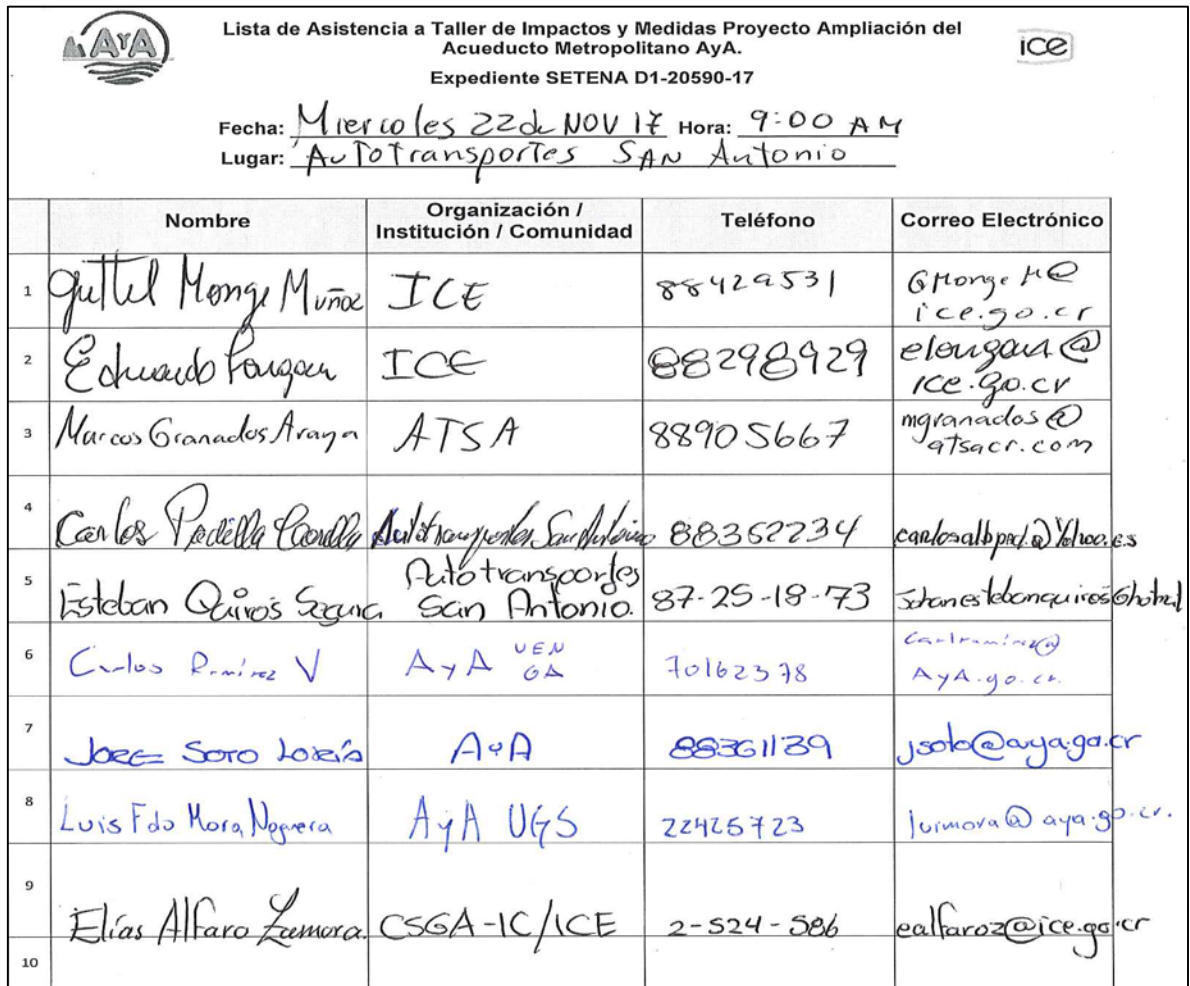 AyA
Lista de Asistencia a Taller de Impactos y Medidas Proyecto Ampliación del
Acueducto Metropolitano AyA.
ice
Expediente SETENA D1-20590-17
Fecha: Miercoles 22 de NOV 17 Hora: 9:00 AM
Lugar: AuToTransporTes SAN Antonio
Nombre Organización / Institución / Comunidad Teléfono Correo Electrónico
1 Guttel Monge Muñoz ICE 88429531 GMongeM@
ice.go.cr
2 Eduardo ICE 88298929
ice.go.cr
3 Marcos Granados Araya ATSA 88905667 mgranados@
atsacr.com
4 Carlos Padilla Autotransportes San Antonio 88362234 carlosalbpad@Yahoo.es
5 Esteban Quirós Segura Autotransportes
San Antonio. 87-25-18-73
6 Carlos Ramírez V AyA UEN
GA 70162378 Carlramirez@
AyA.go.cr.
7 JORGE SOTO LORÍA AyA 88361139 jsoto@aya.go.cr
8 Luis Fdo Mora Noguera AyA UGS 22425723 luimora@aya.go.cr.
9 Elías Alfaro Zamora. CSGA-IC/ICE 2-524-586 ealfaroz@ice.go.cr
10